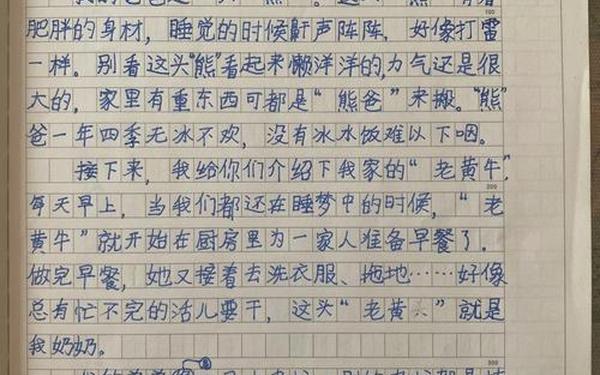 肥胖的身材，睡觉的时候鼾声阵阵，好像打雷
一样。别看这头“熊”看起来懒洋洋的，力气还是很
大的，家里有重东西可都是“熊爸”来搬。“熊”
爸一年四季无冰不欢，没有冰水饭难以下咽。
接下来，我给你们介绍下我家的“老黄牛”，
每天早上，当我们都还在睡梦中的时候，“老
黄牛”就开始在厨房里为一家人准备早餐了．
做完早餐，她又接着去洗衣服、拖地……好像
总有忙不完的活儿要干，这头“老黄头”就是
我奶奶。